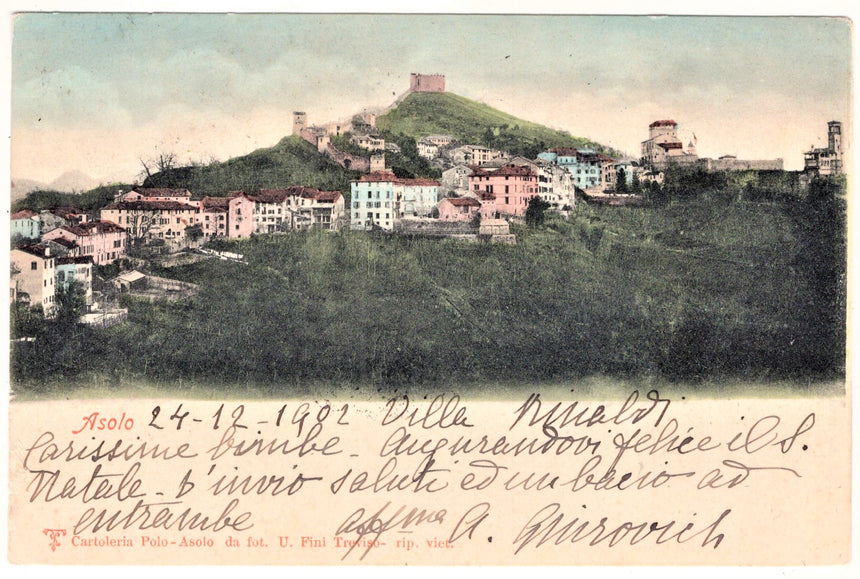 Asolo 24-12-1902 Villa Rinaldi
Carissime bimbe - Augurandovi felice il S.
Natale - v'invio saluti ed un bacio ad
entrambe aff.ma A.
Cartoleria Polo - Asolo da fot. U. Fini Treviso - rip. viet.